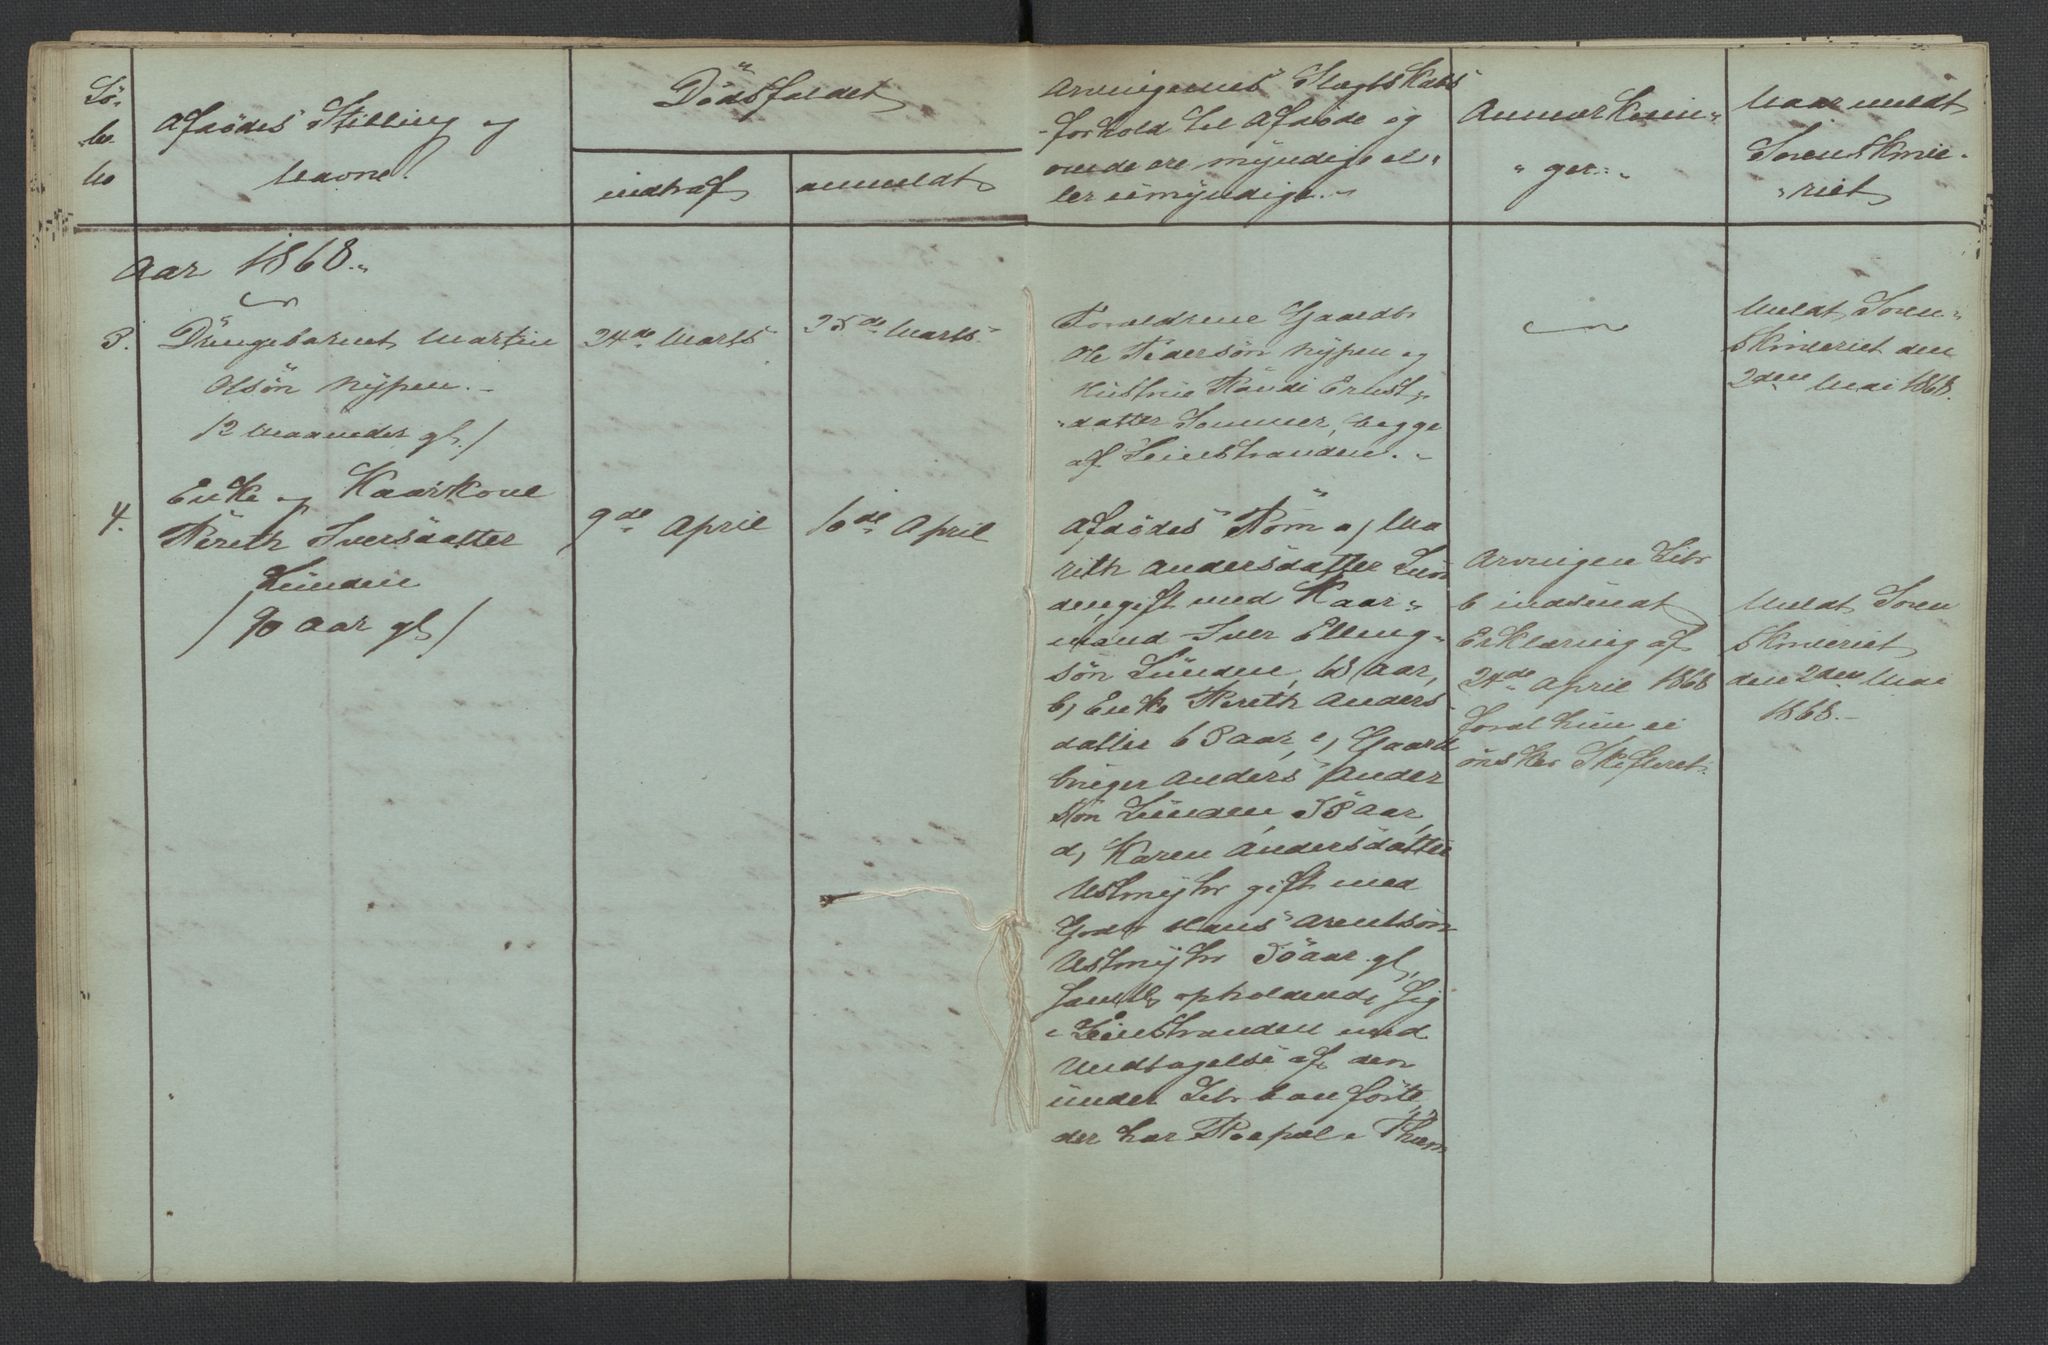 Lö-
be
No
Afdødes Stilling og
Navne.
Dødsfaldet
indtraf
anmeldt
Arvingernes Slægtskabs
forhold til Afdøde og
om de ere myndige el-
ler umyndige.
Anmærknin-
ger.
Naar meldt
Sorenskrive-
riet
Aar 1868.
3.
Drengebarnet Martin
Olsøn Nypen.
12 Maaneder gl./
24de Marts
25de Marts
Forældrene Gaardbr
Ole Pedersøn Nypen og
Hustrue Randi Ernst-
datter Sommer, begge
af Leinstranden.
Meldt Soren-
skriveriet den
2den Mai 1868.
4.
Enke og Kaarkone
Berith Iversdatter
Lunden
/90 Aar gl/
9de April
16de April
Afdødes Børn a, Ma
rith Andersdatter Lun
den gift med Kaar-
mand Iver Elling-
søn Lunden, 68 Aar,
b, Enke Berith Anders
datter 63 aar, c, Gaard
bruger Anders Ander
søn Lunden 58 Aar,
d, Karen Andersdatter
Ustmyhr gift med
Gbr Hans Arentsøn
Ustmyhr 50 aar gl,
samtl opholdende sig
i Leinstranden med
Undtagelse af den
under Litr b anførte,
der har Bopæl i Thjem
Arvingen Litr
b indsendt
Erklæring af
24de April 1868
hvorat hun ei
ønsker Skifteret.
Meldt Soren
skriveriet
den 2den Mai
1868.